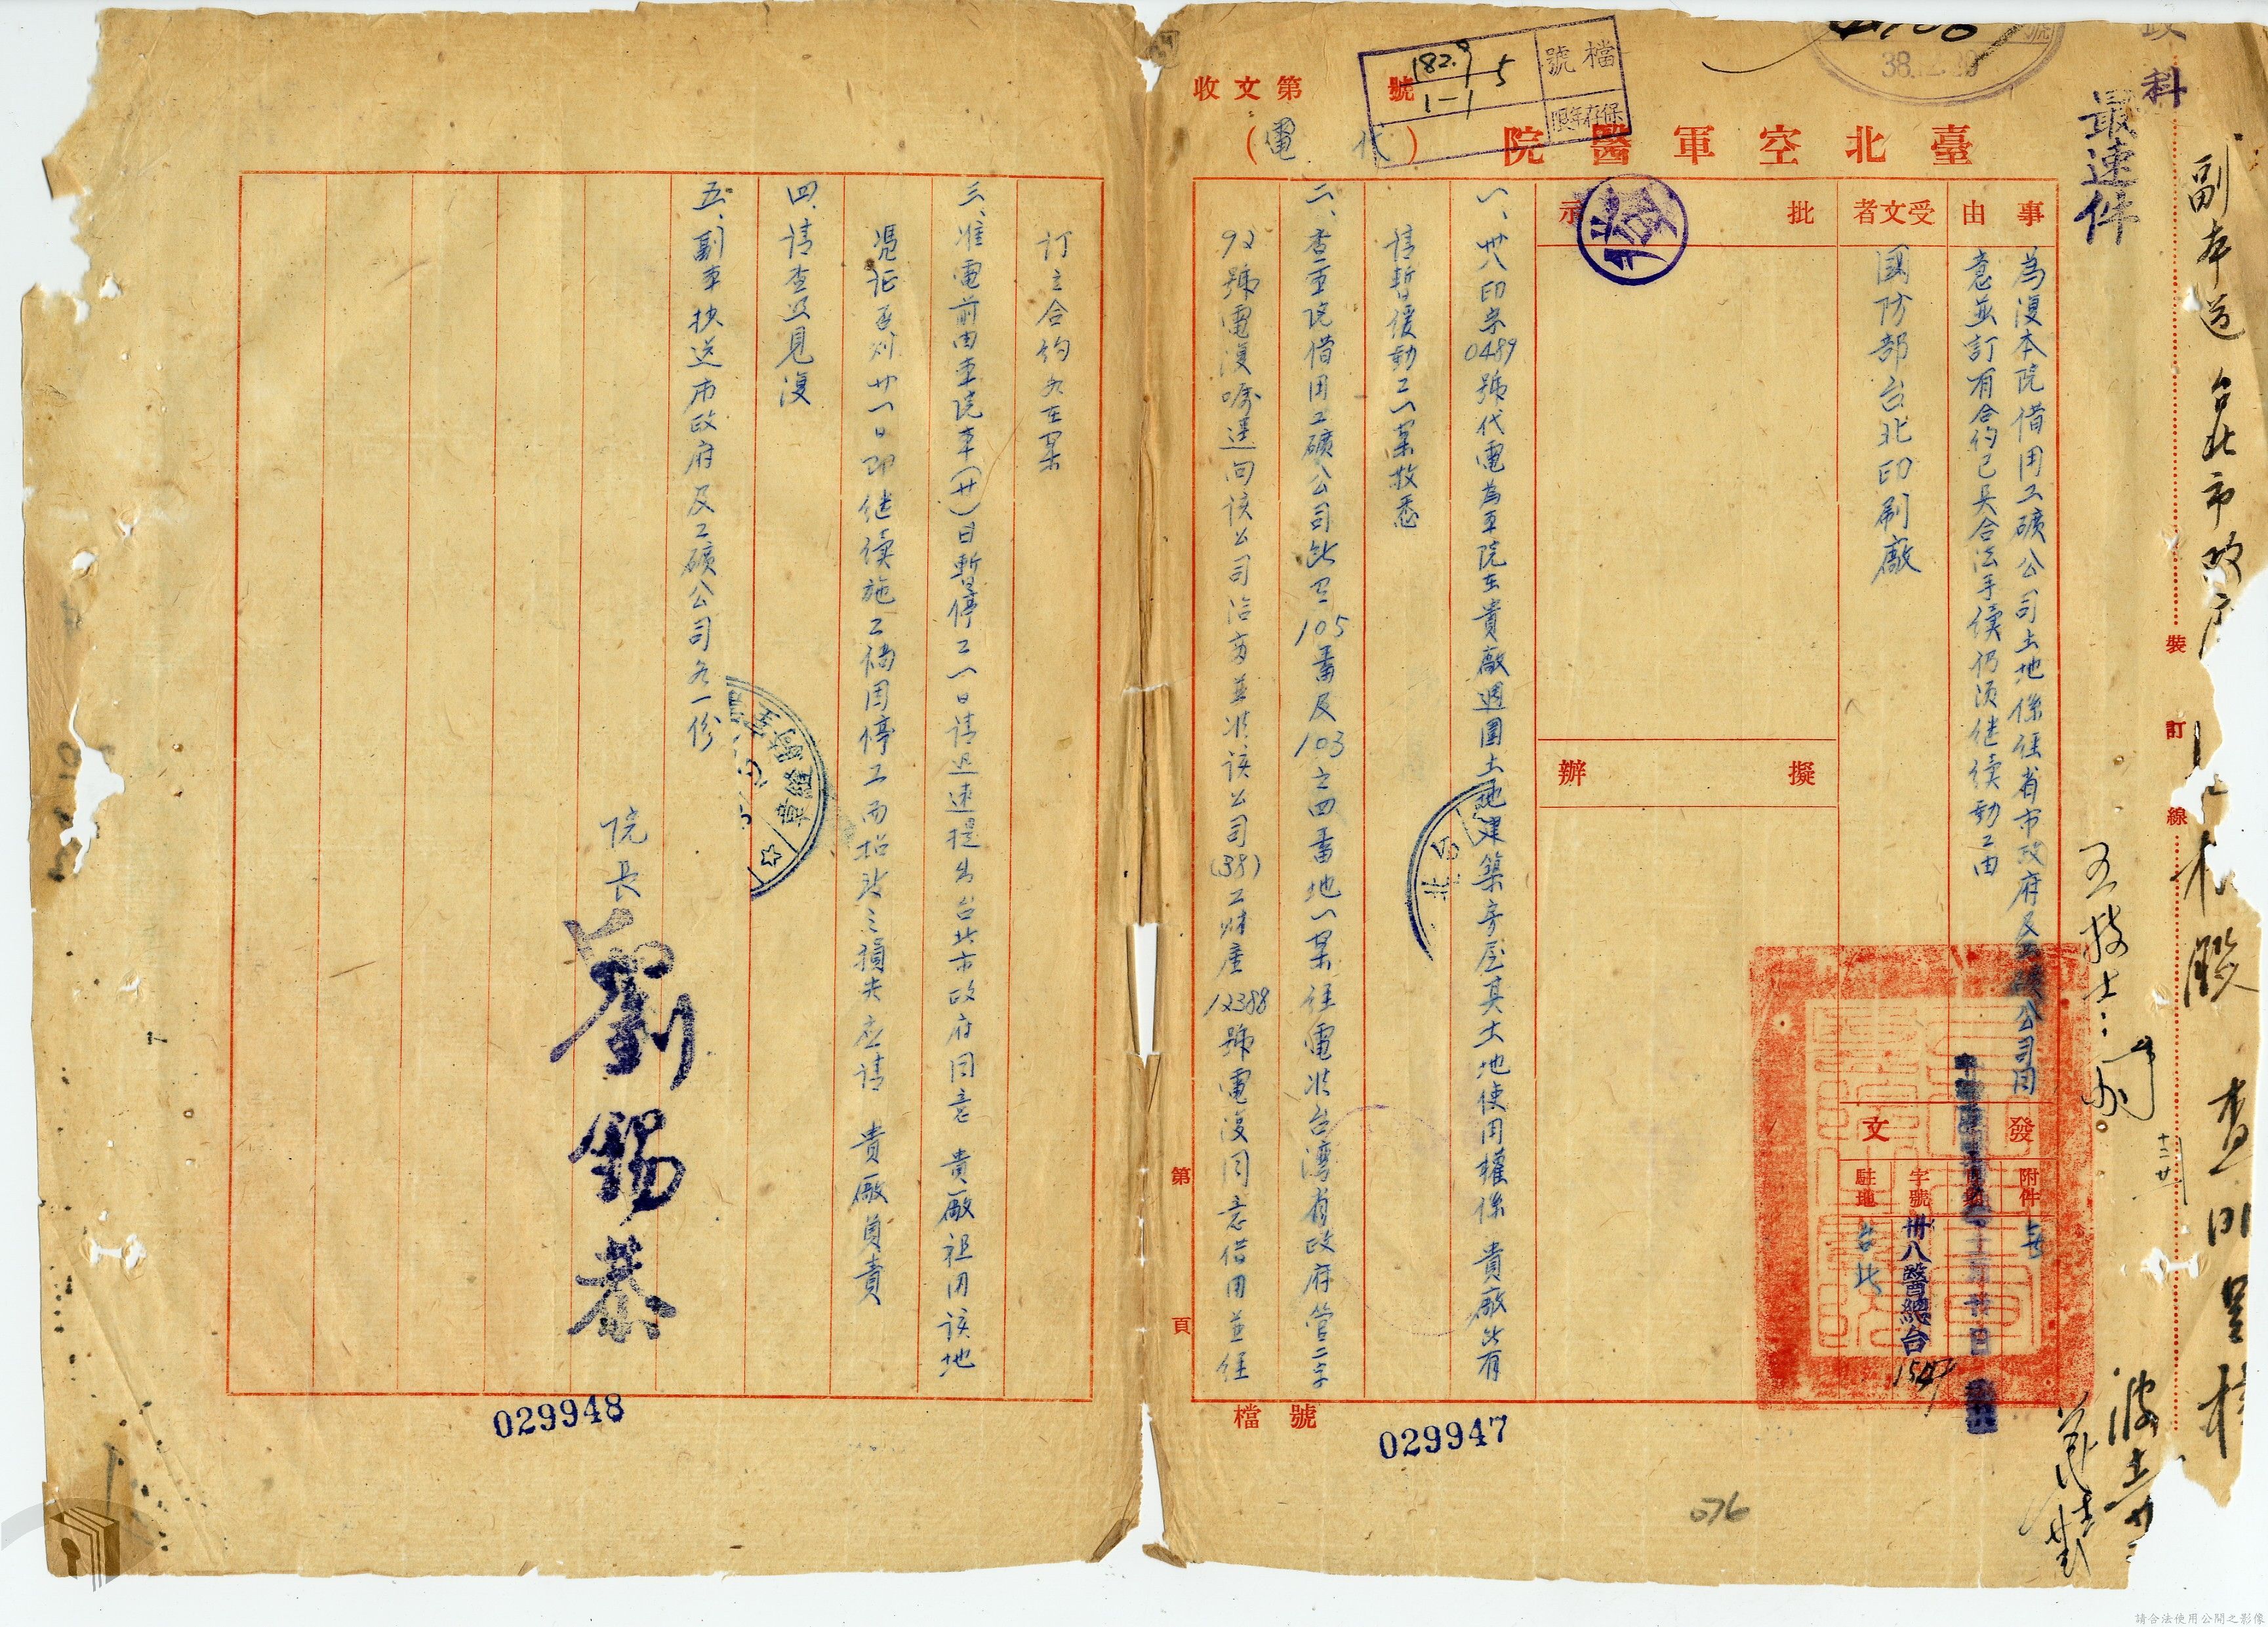 副本送 台北市政府
最速件
科
收文第 號
檔號
182.9 5
1-1
保存年限
38.12.20
臺北空軍醫院
(代電)
事由
為復本院借用工礦公司土地係經省市政府及工礦公司同
意並訂有合約已具合法手續仍須继續動工由
受文者
國防部台北印刷廠
批示
擬辦
發文
附件
無
字號
卅八醫總台
駐地
台北
一、卅八印字0489號代電為本院在貴廠週圍土地建築房屋其土地使用權係 貴廠所有
請暫緩動工一案敬悉
二、查本院借用工礦公司所有105番及103之四番地一案經電准台灣省政府管二字
92號電復嘱逕向該公司洽商並准該公司(38)工財產12388號電復同意借用並經
訂立合約各在案
三、准電前由本院本(廿)日暫停工一日請迅速提出台北市政府同意 貴廠租用該地
憑証否則廿一日即继續施工倘因停工而招致之損失应請 貴廠負責
四、請查照見復
五、副本抄送市政府及工礦公司各一份
院長 劉錫恭
裝訂線
第 頁
檔號
029947
029948
076
請合法使用公開之影像